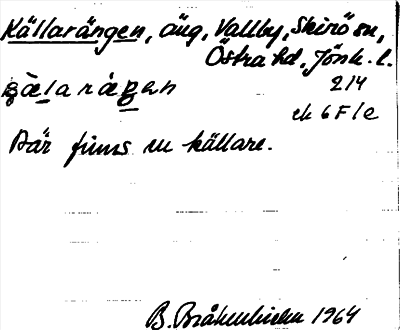 Källarängen, äng, Vallby, Skirö sn,
Östra hd, Jönk. l.
214
ek 6 F 1 e
Där finns en källare.
B. Bråkenhielm 1964